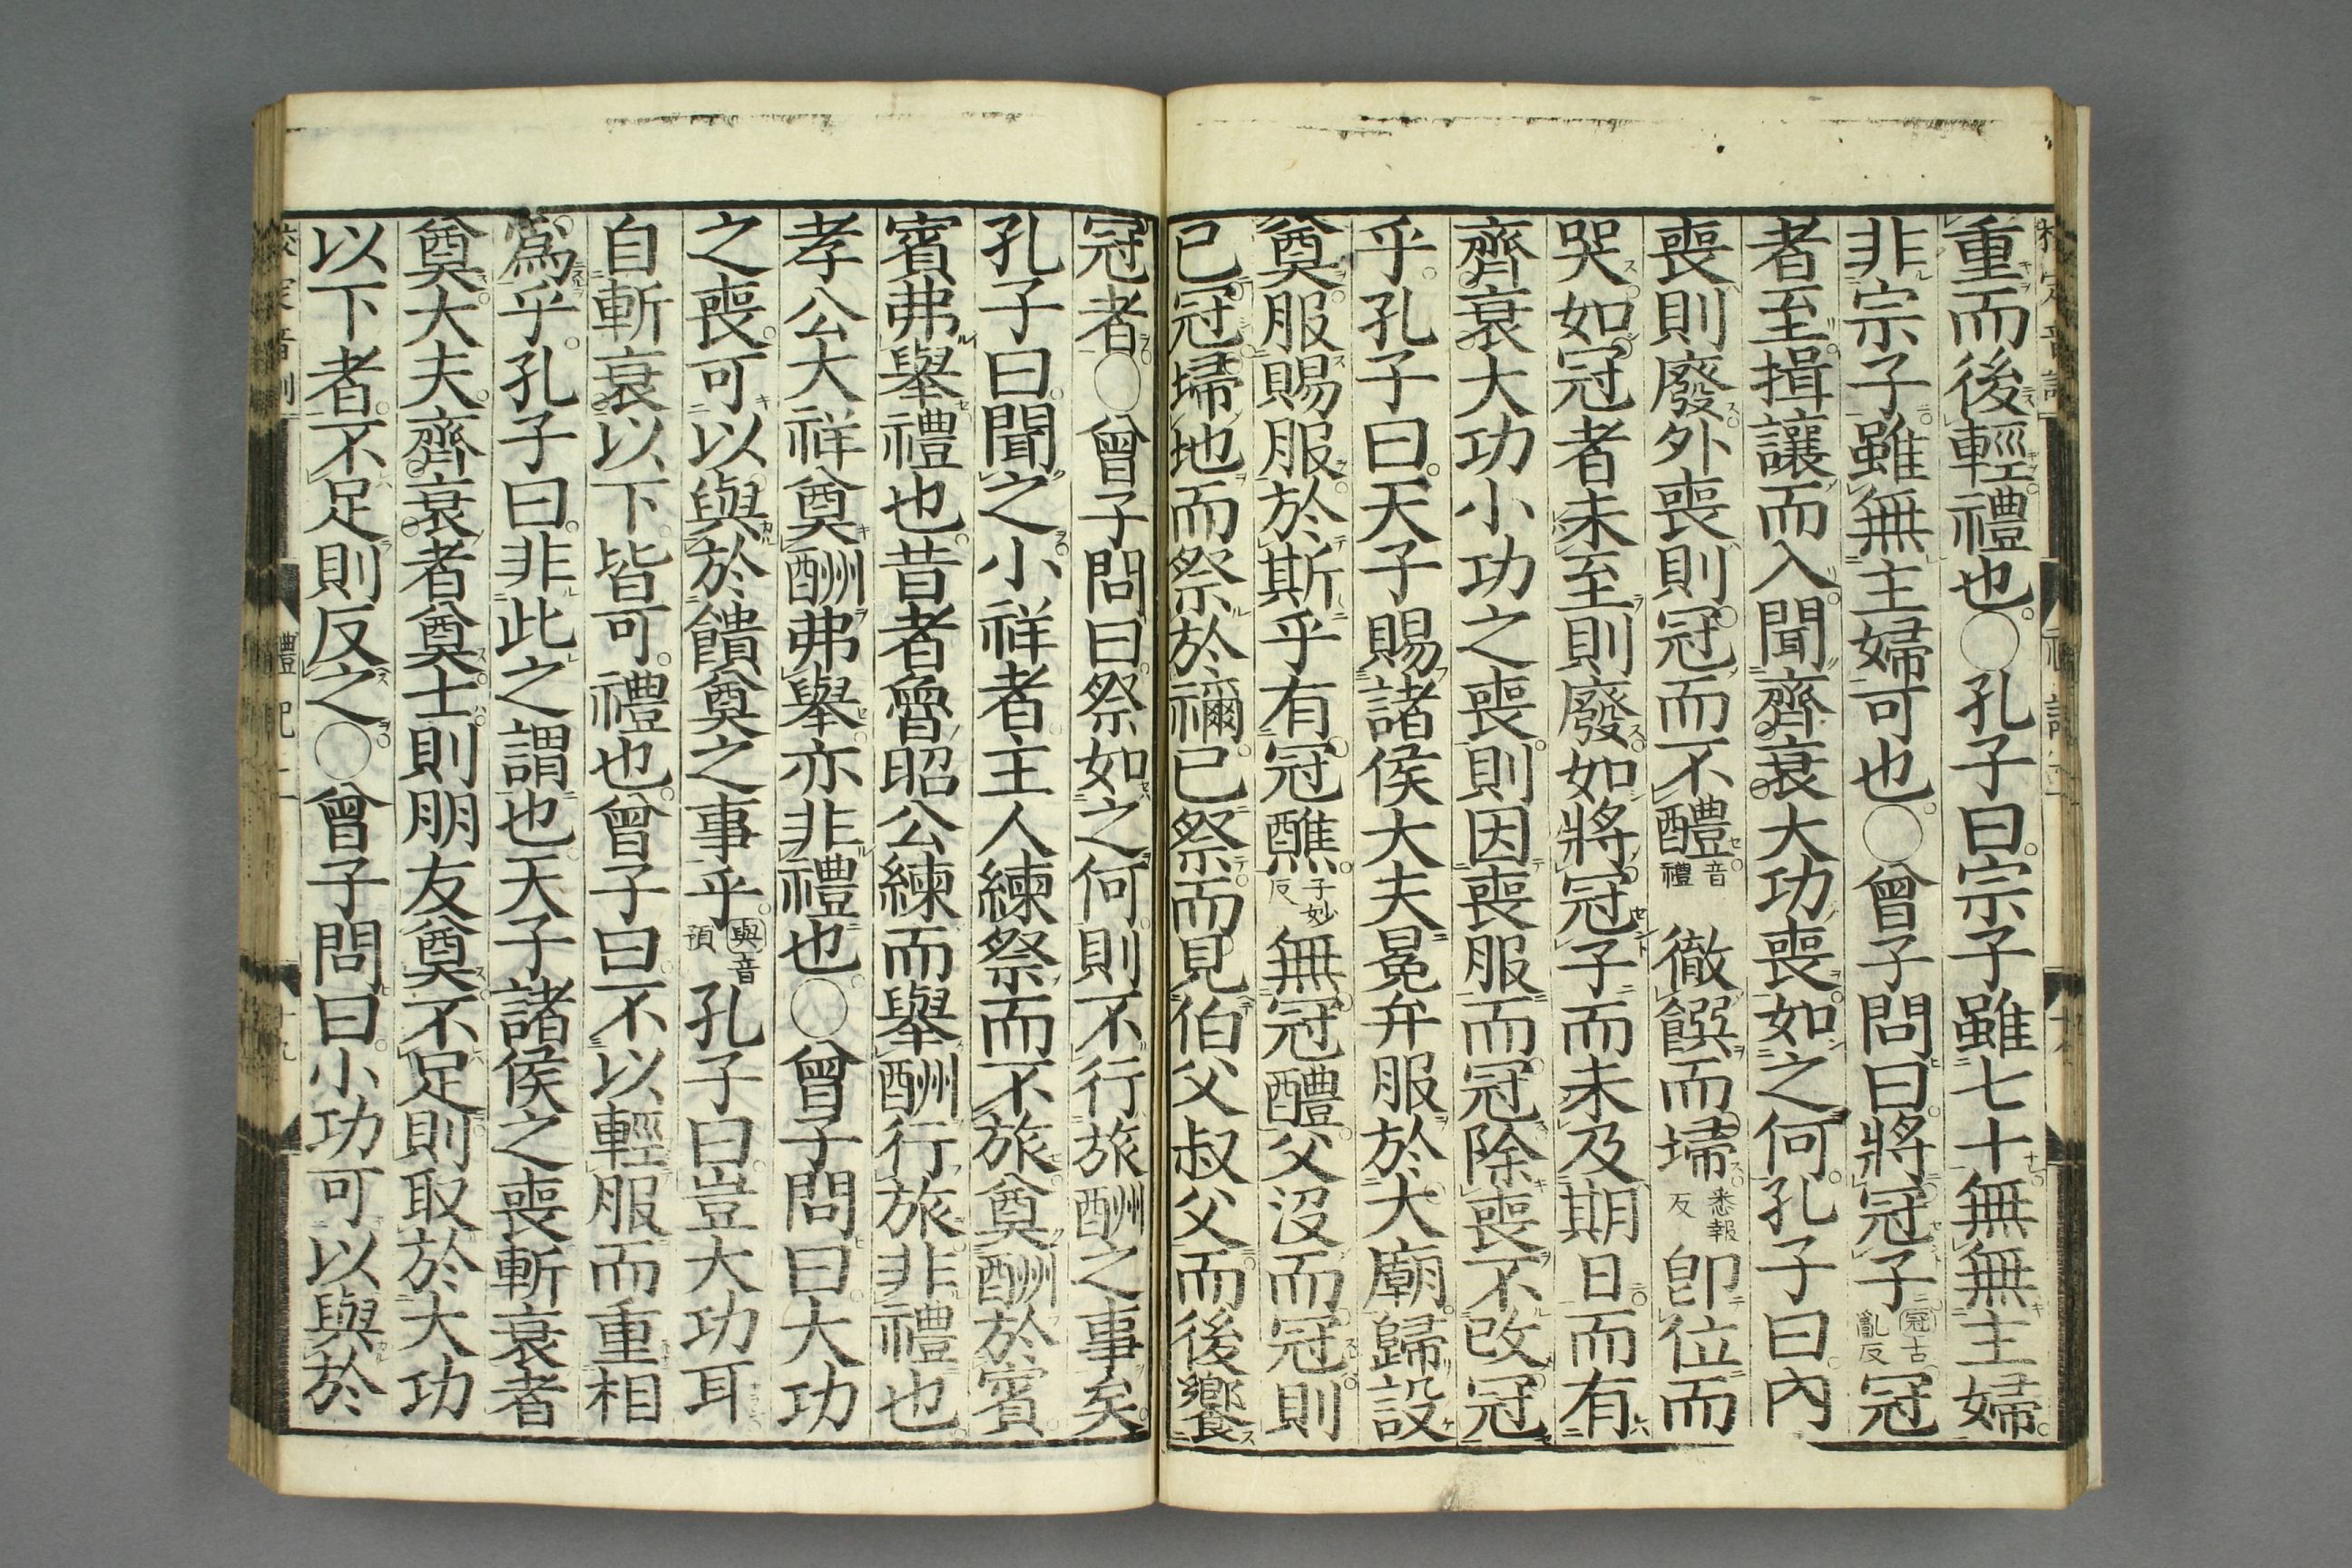 重而後輕禮也○孔子曰宗子雖七十無無主婦
非宗子雖無主婦可也○曾子問曰將冠子冠古亂反冠
者至揖讓而入聞齊衰大功喪如之何孔子曰內
喪則廢外喪則冠而不醴音禮徹饌而埽悉報反卽位而
哭如冠者未至則廢如將冠子而未及期日而有
齊衰大功小功之喪則因喪服而冠除喪不改冠
乎孔子曰天子賜諸侯大夫冕弁服於大廟歸設
奠服賜服於斯乎有冠醮子妙反無冠醴父沒而冠則
已冠埽地而祭於禰已祭而見伯父叔父而後饗
冠者○曾子問曰祭如之何則不行旅酬之事矣
孔子曰聞之小祥者主人練祭而不旅奠酬於賓
賓弗舉禮也昔者魯昭公練而舉酬行旅非禮也
孝公大祥奠酬弗舉亦非禮也○曾子問曰大功
之喪可以與於饋奠之事乎與音預孔子曰豈大功耳
自斬衰以下皆可禮也曾子曰不以輕服而重相
爲乎孔子曰非此之謂也天子諸侯之喪斬衰者
奠大夫齊衰者奠士則朋友奠不足則取於大功
以下者不足則反之○曾子問曰小功可以與於
禮記二